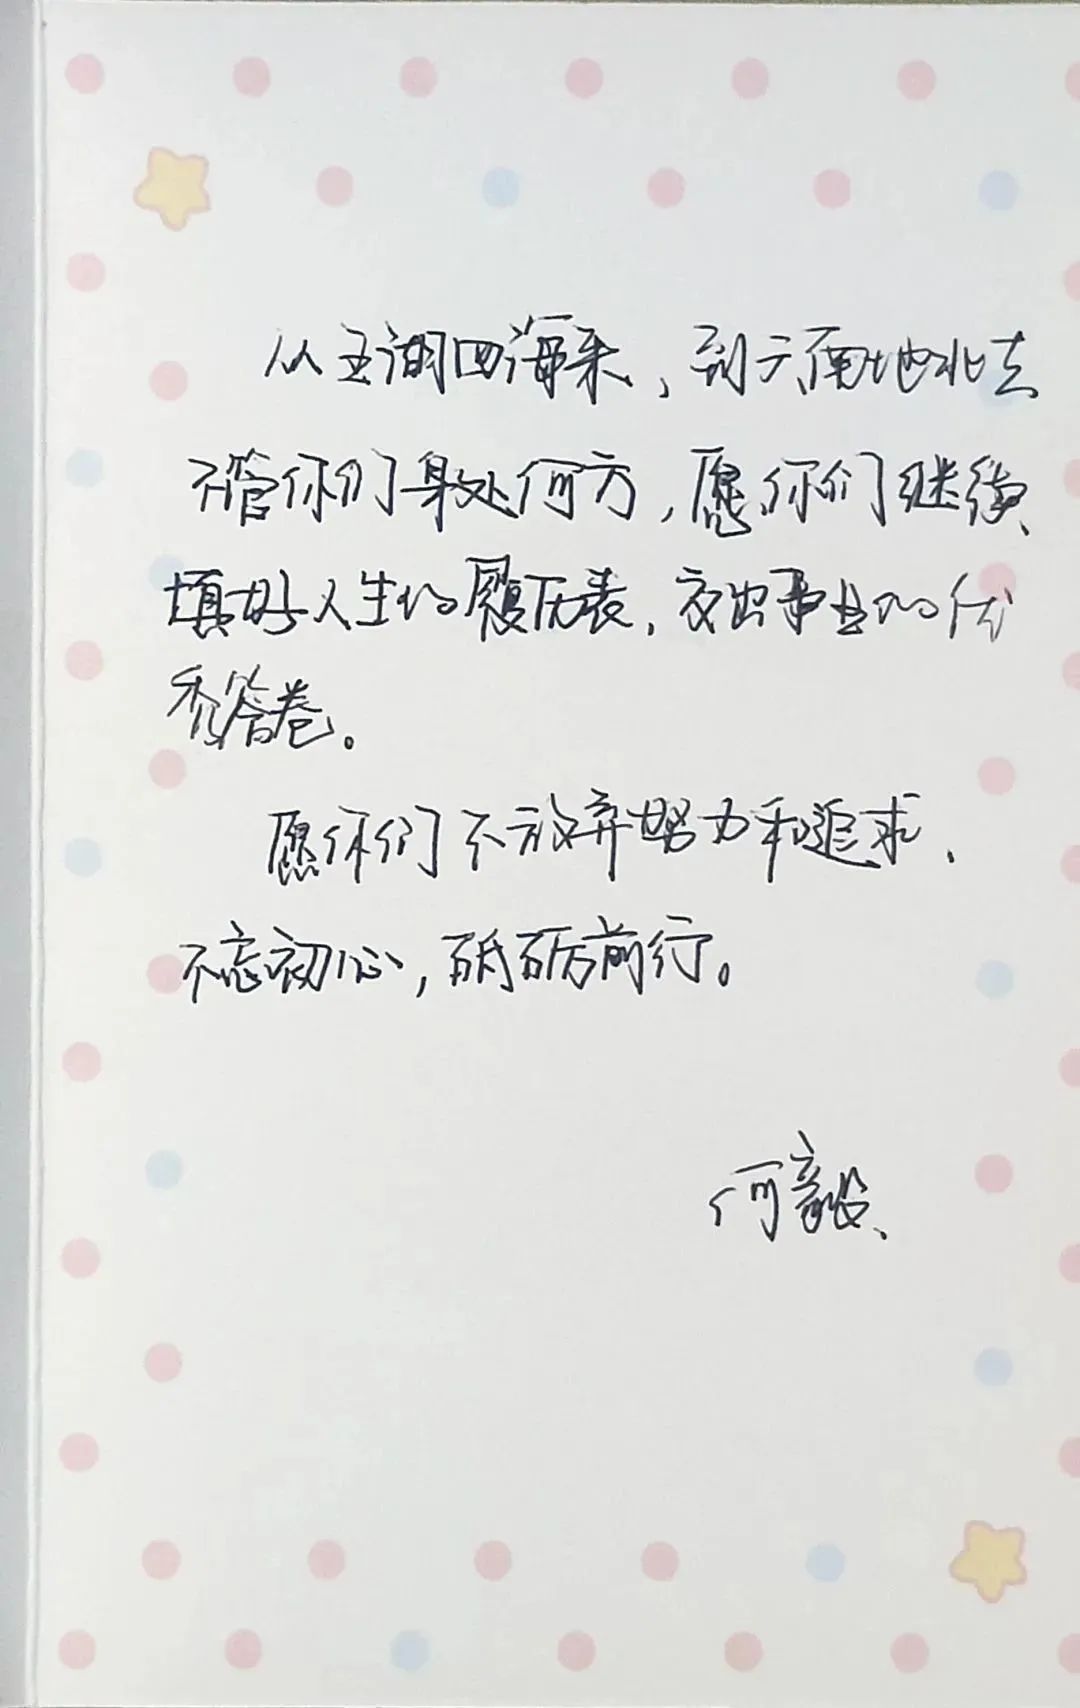 从五湖四海来，到天南地北去
不管你们身处何方，愿你们继续
填好人生的履历表，交出事业的优
秀答卷。
愿你们不放弃努力和追求、
不忘初心，砥砺前行。
何毅